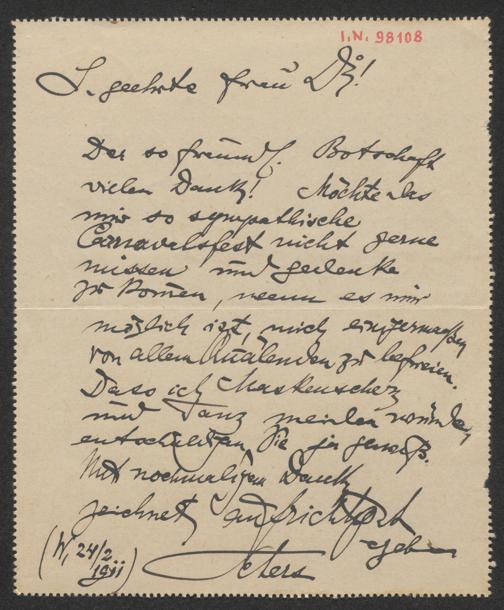 I.N. 98108
S. geehrte Frau Dr!
Der so freundl. Botschaft
vielen Dank! Möchte das
mir so sympathische
Carnavalsfest nicht gerne
missen und gedenke
zu kom̄en, wenn es mir
möglich ist, mich einigermaßen
von allem Quälenden zu befreien.
Dass ich Maskenscherz
und Tanz meiden würde,
entschuldigen Sie ja gewiß.
Mit nochmaligem Dank
zeichnet aufrichtigst
ergeben
(W, 24/2
1911)
Peters